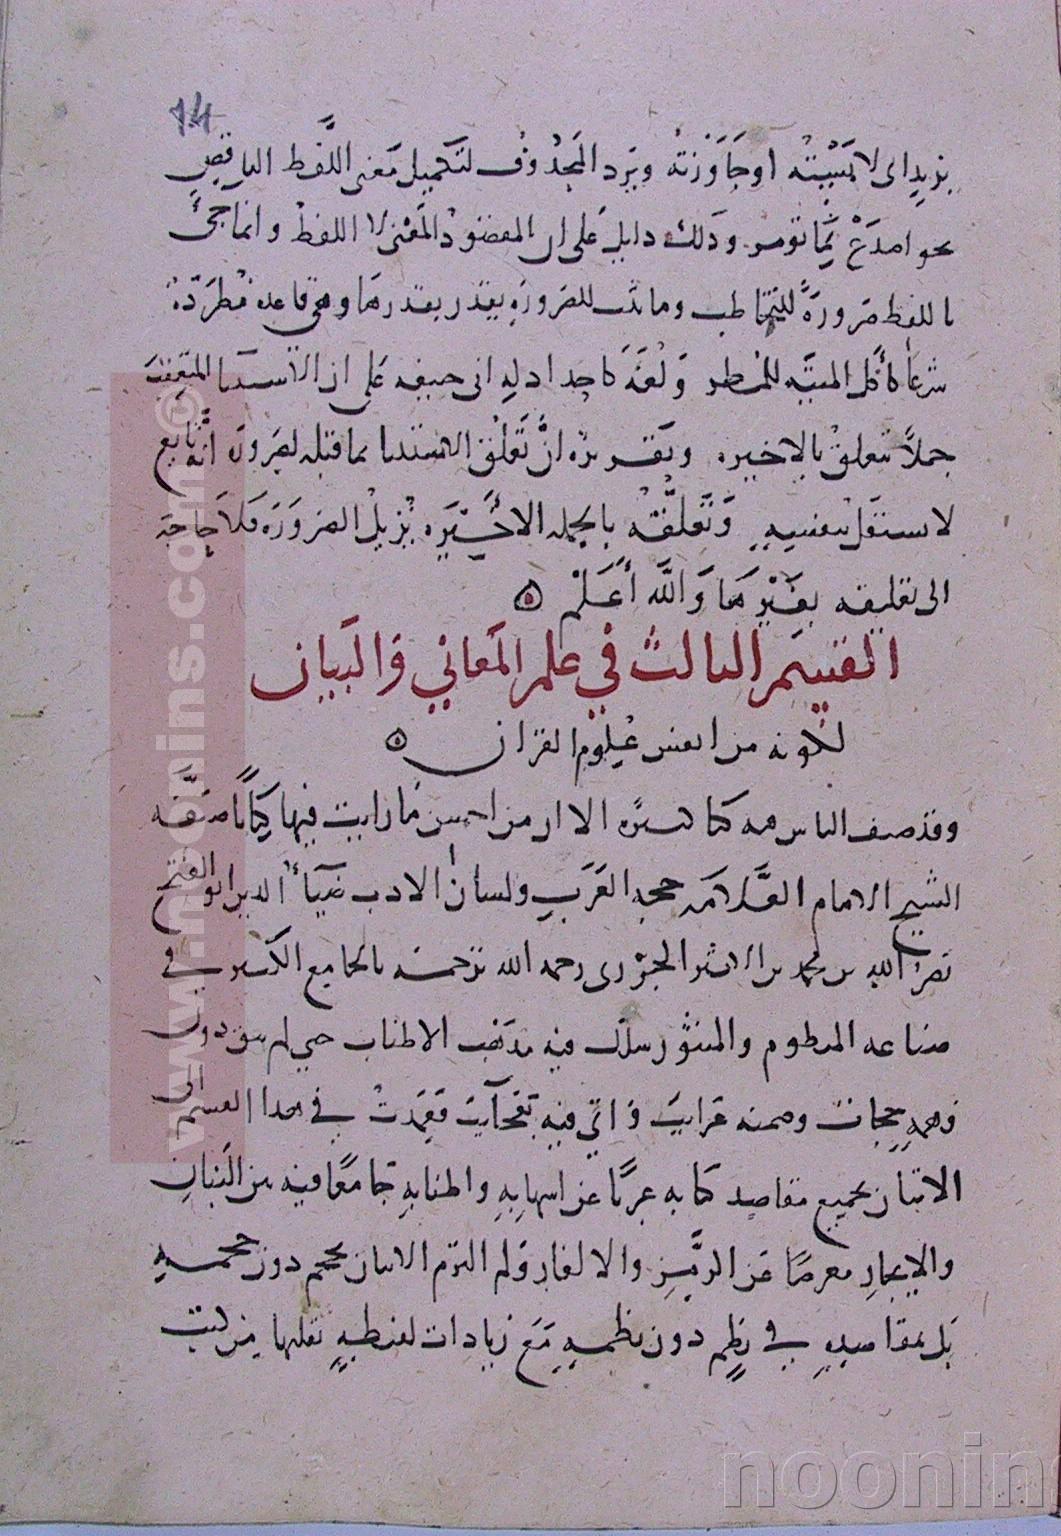 14
بزيد اى لابسته او جاوزته ويرد المحذوف لتكميل معنى اللفظ الناقص
نحو اصدع بما تؤمر وذلك دليل على ان المقصود المعنى لا اللفظ وانما جئ
باللفظ ضرورة للتخاطب وما ثبت للضرورة يقدر بقدرها وهى قاعدة مطردة
شرعا كأكل الميتة للمضطر ولغة كاحد ادلة ابى حنيفة على ان الاستثنا المتعقب
جملا يتعلق بالاخيرة وتقريره ان تعلق الاستثنا بما قبله لضرورة انه تابع
لا يستقل بنفسه وتعلقه بالجملة الاخيرة يزيل الضرورة فلا حاجة
الى تعليقه بغيرها والله أعلم
القسم الثالث في علم المعاني والبيان
لكونه من انفس علوم القران
وقد صنف الناس فيه كتبا كثيرة الا ان من احسن ما رايت فيها كتابا صنفه
الشيخ الامام العلامة حجة العرب ولسان الادب ضياء الدين ابو الفتح
نصر الله بن محمد بن الاثير الجزرى رحمه الله ترجمته بالجامع الكبير في
صناعة المنظوم والمنثور سلك فيه مذهب الاطناب حتى لم يبق دون
فهمه حجاب وضمنه غرايب واتى فيه فقصدت في هذا القسم الى
الاتيان بجميع مقاصد كتابه عريا عن اسهابه واطنابه جامعا فيه بين التبيان
والايجاز معرضا عن الرمز والالغاز ولم التزم الاتيان بحجم دون حجمه
بل بمقاصده في نظم دون نظمه مع زيادات لفظية نقلتها من كتب
www.noonins.com©
noonin